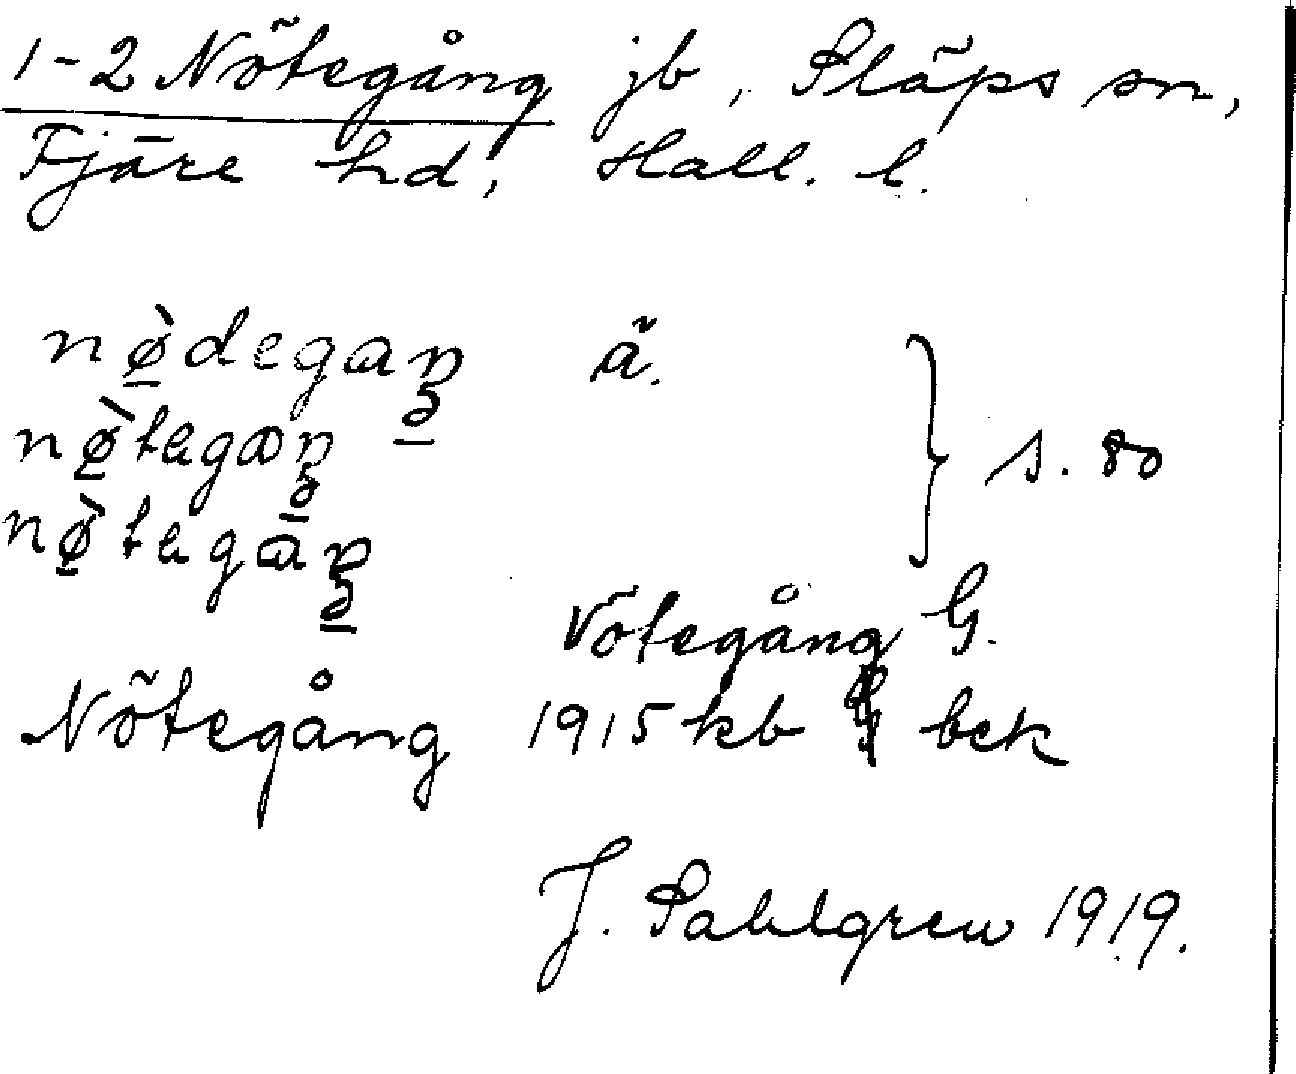 1-2 Nötegång jb, Släps sn,
Fjäre hd, Hall. l.
nø̀degaŋ ä.
nø̀tegaŋ
nø̀tegåŋ
s. 80
Nötegång G.
Nötegång 1915 kb bek
J. Sahlgren 1919.